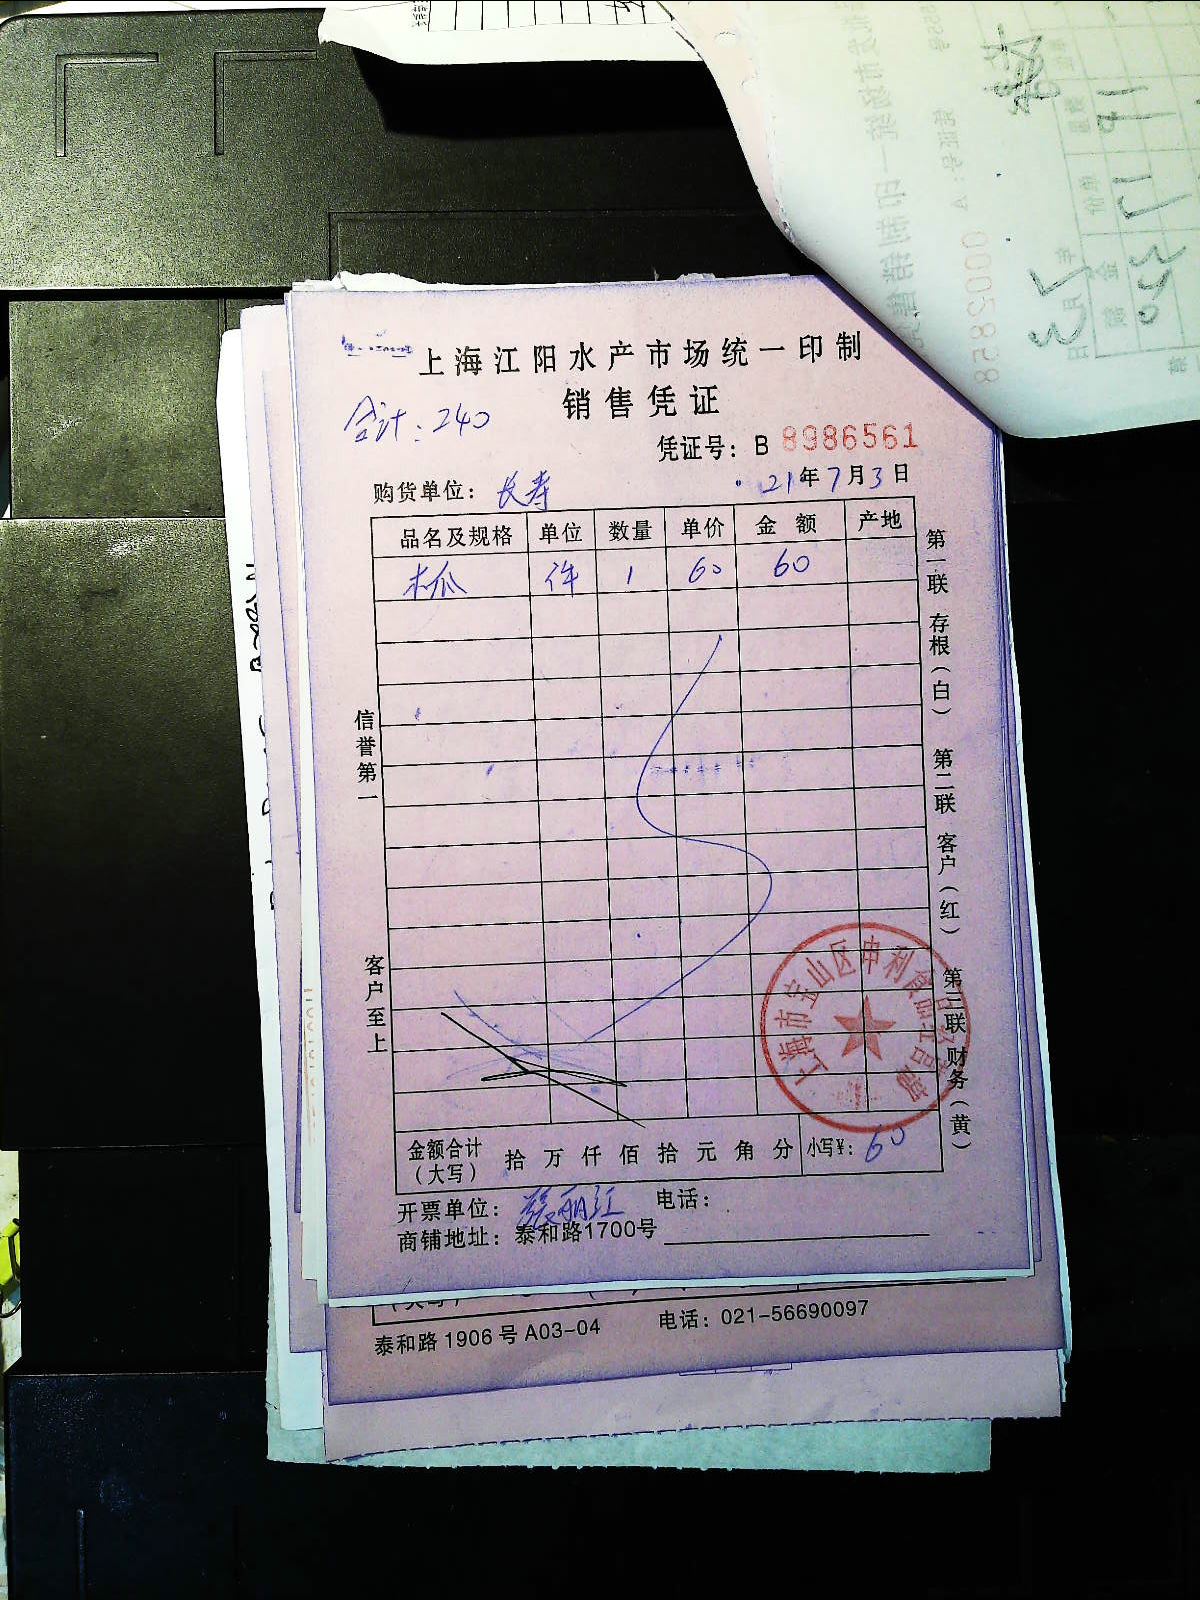 上海江阳水产市场统一印制
合计：240
销售凭证
凭证号：B 8986561
购货单位：长寿
21年7月3日
品名及规格 单位 数量 单价 金额 产地
木瓜 件 1 60 60
信誉第一
客户至上
第一联 存根（白） 第二联 客户（红） 第三联 财务（黄）
上海市宝山区申利食品
金额合计（大写） 拾万仟佰拾元角分 小写¥：60
开票单位：张丽江 电话：
商铺地址：泰和路1700号
泰和路1906号A03-04 电话：021-56690097
A 0002858